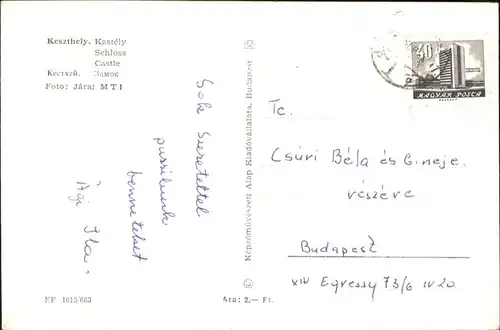 Keszthely. Kastély
Schloss
Castle
Кестхей. Замок
Foto: Járai MTI
Sok szeretettel
puszilunk
benneteket
Ági Ila.
EF 1015/663
Ára: 2,— Ft.
© Képzőművészeti Alap Kiadóvállalata, Budapest
40
MAGYAR POSTA
Tc.
Csűri Béla és b. neje.
részére
Budapest
XIV Egressy 73/b IV 20